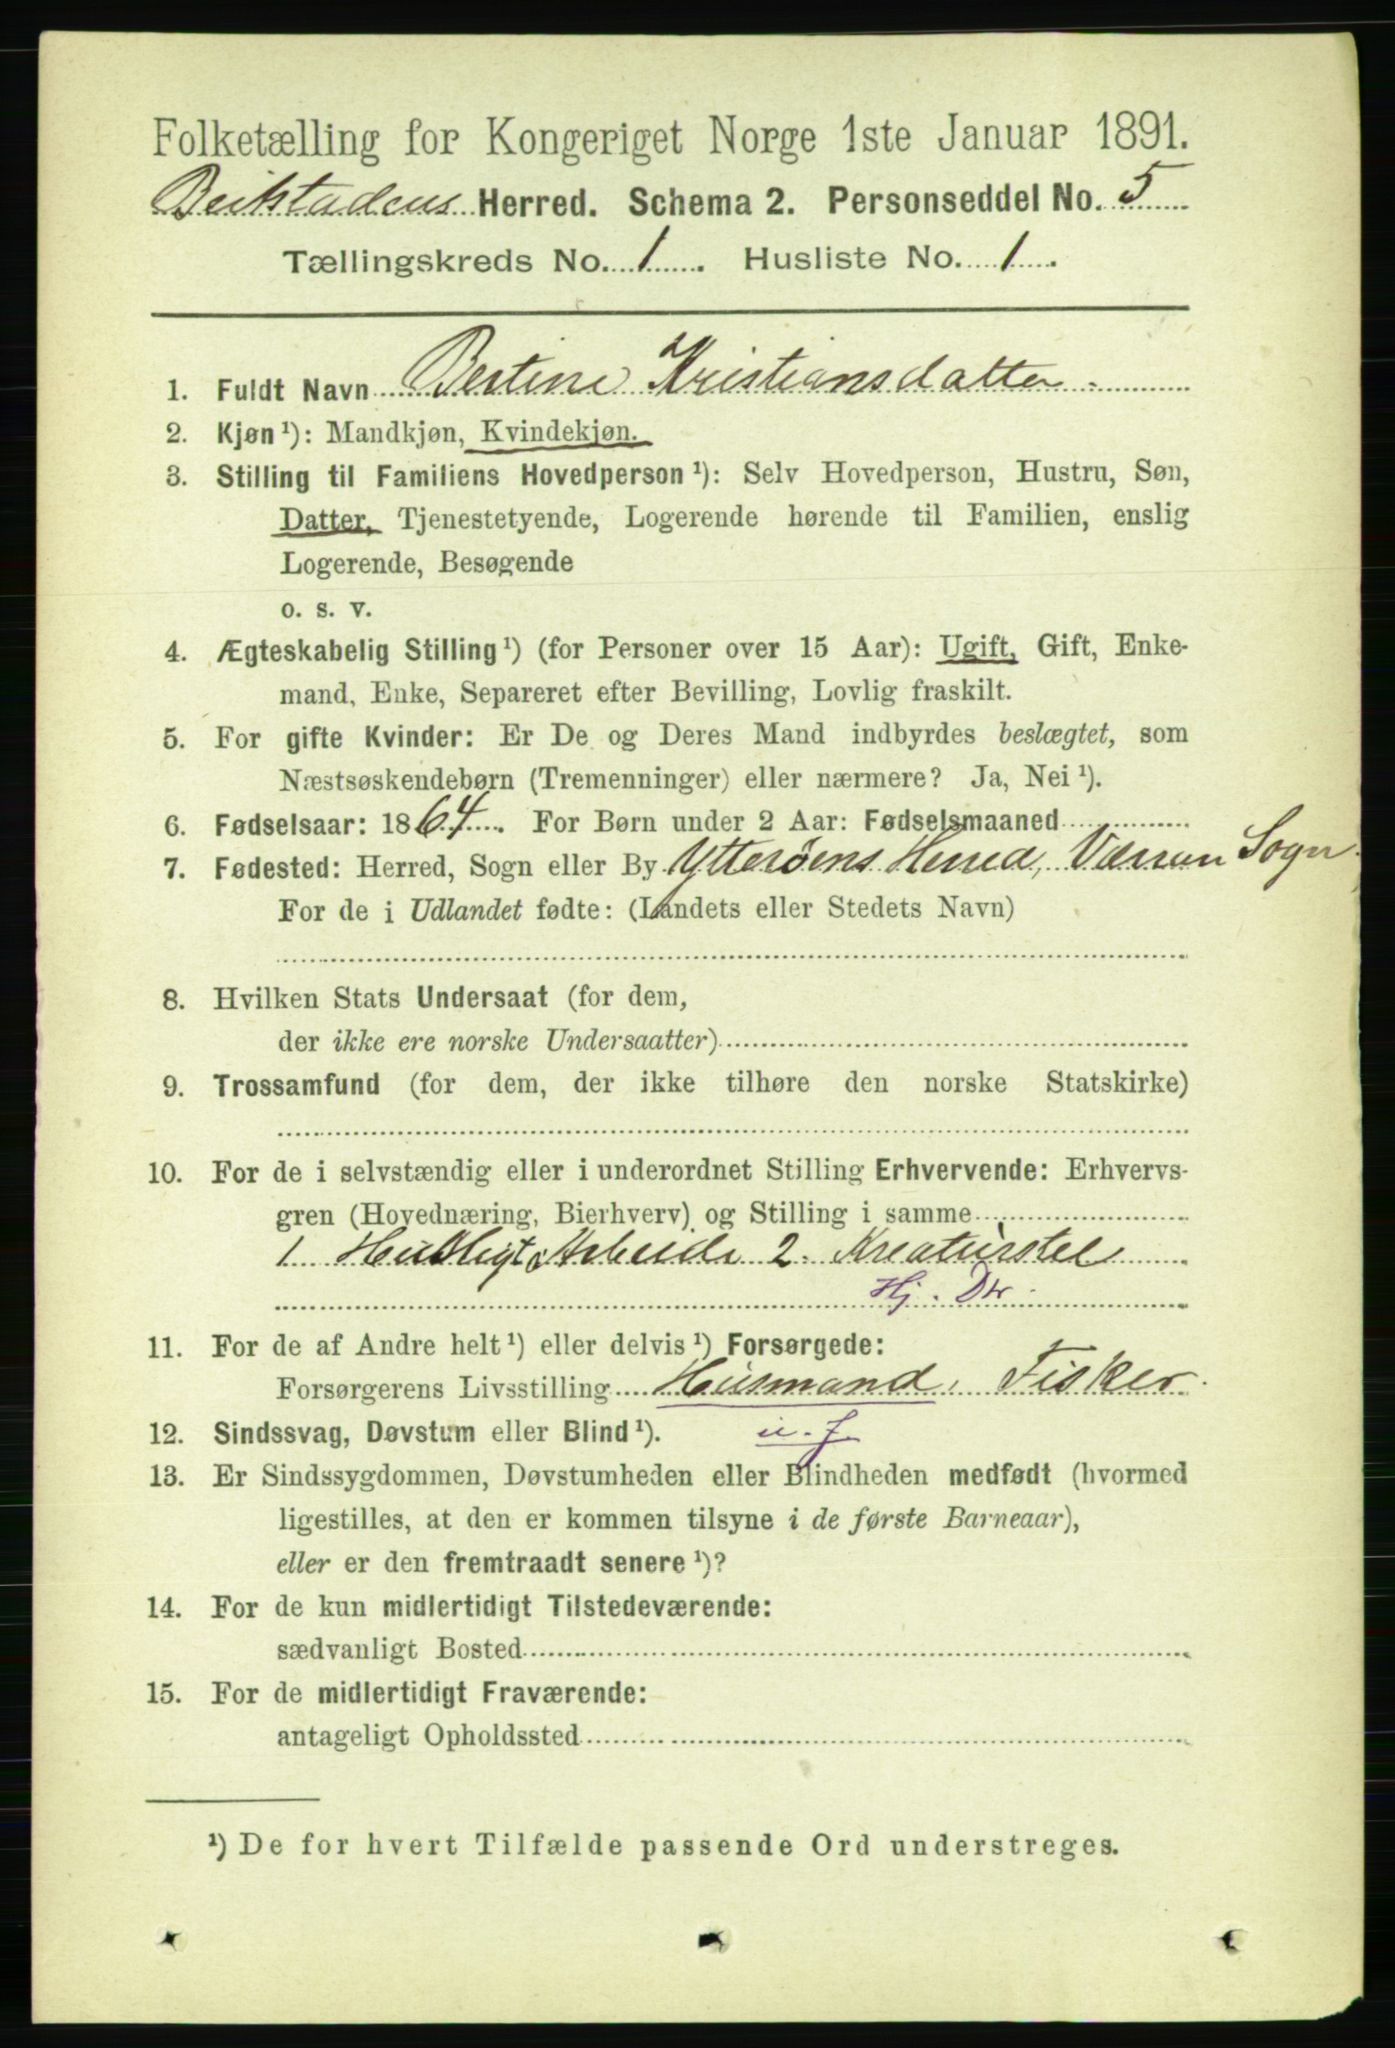 Folketælling for Kongeriget Norge 1ste Januar 1891.
Beitstadens Herred. Schema 2. Personseddel No. 5
Tællingskreds No. 1. Husliste No. 1.
1. Fuldt Navn Bertine Kristiansdatter.
2. Kjøn ¹): Mandkjøn, Kvindekjøn.
3. Stilling til Familiens Hovedperson ¹): Selv Hovedperson, Hustru, Søn,
Datter, Tjenestetyende, Logerende hørende til Familien, enslig
Logerende, Besøgende
o. s. v.
4. Ægteskabelig Stilling ¹) (for Personer over 15 Aar): Ugift, Gift, Enke-
mand, Enke, Separeret efter Bevilling, Lovlig fraskilt.
5. For gifte Kvinder: Er De og Deres Mand indbyrdes beslægtet, som
Næstsøskendebørn (Tremenninger) eller nærmere? Ja, Nei ¹).
6. Fødselsaar: 1864. For Børn under 2 Aar: Fødselsmaaned
7. Fødested: Herred, Sogn eller By Ytterøens Herred, Værran Sogn.
For de i Udlandet fødte: (Landets eller Stedets Navn)
8. Hvilken Stats Undersaat (for dem,
der ikke ere norske Undersaatter)
9. Trossamfund (for dem, der ikke tilhøre den norske Statskirke)
10. For de i selvstændig eller i underordnet Stilling Erhvervende: Erhvervs-
gren (Hovednæring, Bierhverv) og Stilling i samme
1. Husligt Arbeide 2. Kreaturstel
Hj. Dtr.
11. For de af Andre helt ¹) eller delvis ¹) Forsørgede:
Forsørgerens Livsstilling Husmand, Fisker.
u. J.
12. Sindssvag, Døvstum eller Blind ¹).
13. Er Sindssygdommen, Døvstumheden eller Blindheden medfødt (hvormed
ligestilles, at den er kommen tilsyne i de første Barneaar),
eller er den fremtraadt senere ¹)?
14. For de kun midlertidigt Tilstedeværende:
sædvanligt Bosted
15. For de midlertidigt Fraværende:
antageligt Opholdssted
¹) De for hvert Tilfælde passende Ord understreges.